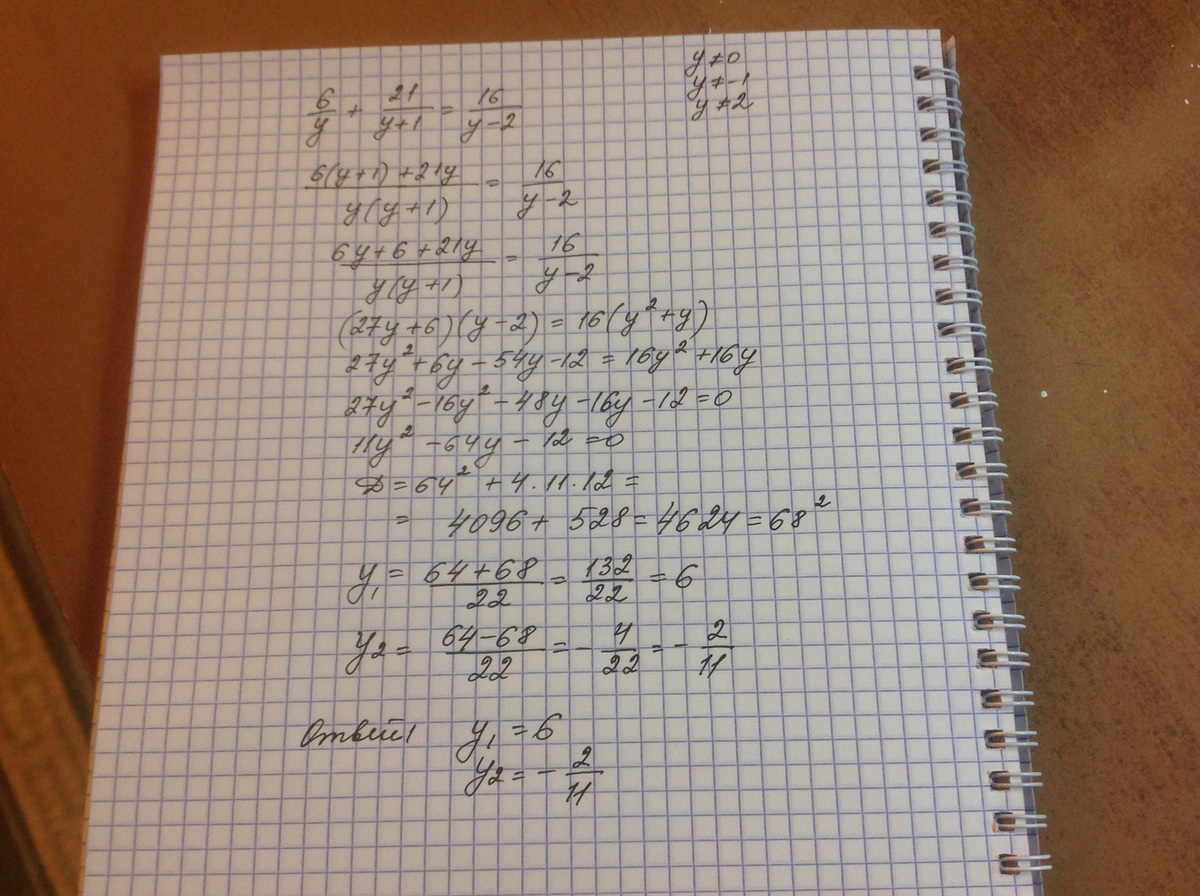 y ≠ 0
y ≠ -1
y ≠ 2
6/y + 21/(y+1) = 16/(y-2)
(6(y+1)+21y)/(y(y+1)) = 16/(y-2)
(6y+6+21y)/(y(y+1)) = 16/(y-2)
(27y+6)(y-2) = 16(y²+y)
27y²+6y-54y-12 = 16y²+16y
27y²-16y²-48y-16y-12=0
11y²-64y-12=0
D = 64² + 4·11·12 =
= 4096 + 528 = 4624 = 68²
y₁ = (64+68)/22 = 132/22 = 6
y₂ = (64-68)/22 = -4/22 = -2/11
Ответ: y₁ = 6
y₂ = -2/11